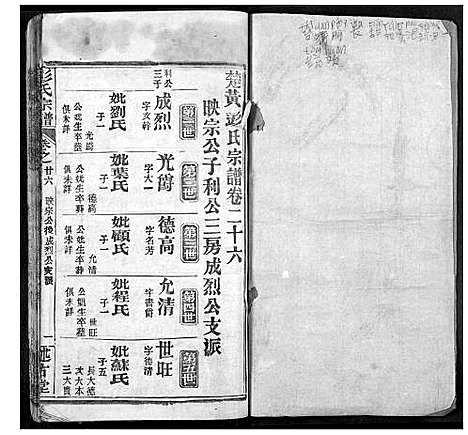 楚黃彭氏宗譜卷二十六
映宗公子利公三房成烈公支派
第一世
利公三子
成烈
字文幹
妣劉氏
子一
光爵
公妣生卒葬俱未詳
第二世
光爵
字大一
妣葉氏
子一
德高
公妣生卒葬俱未詳
第三世
德高
字名芳
妣顧氏
子一
允清
公妣生卒葬俱未詳
第四世
允清
字書爵
妣程氏
子一
世旺
公妣生卒葬俱未詳
第五世
世旺
字德清
妣蘇氏
子五
長大德
次大本
三大
彭氏宗譜
卷之廿六
映宗公後成烈公支派
一
述古堂